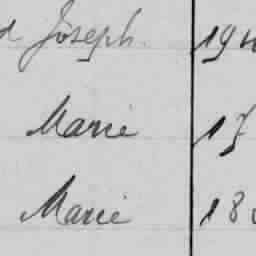 Joseph
Marie 17
Marie 18